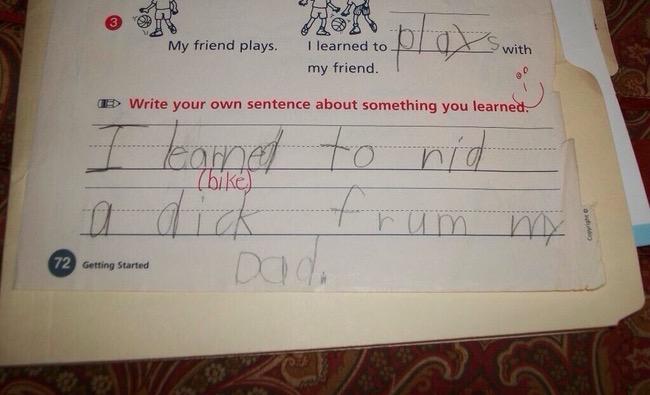 3
My friend plays. I learned to plays with
my friend.
Write your own sentence about something you learned.
I learned to rid
(bike)
a dick frum my
Dad.
72 Getting Started
Copyright ©